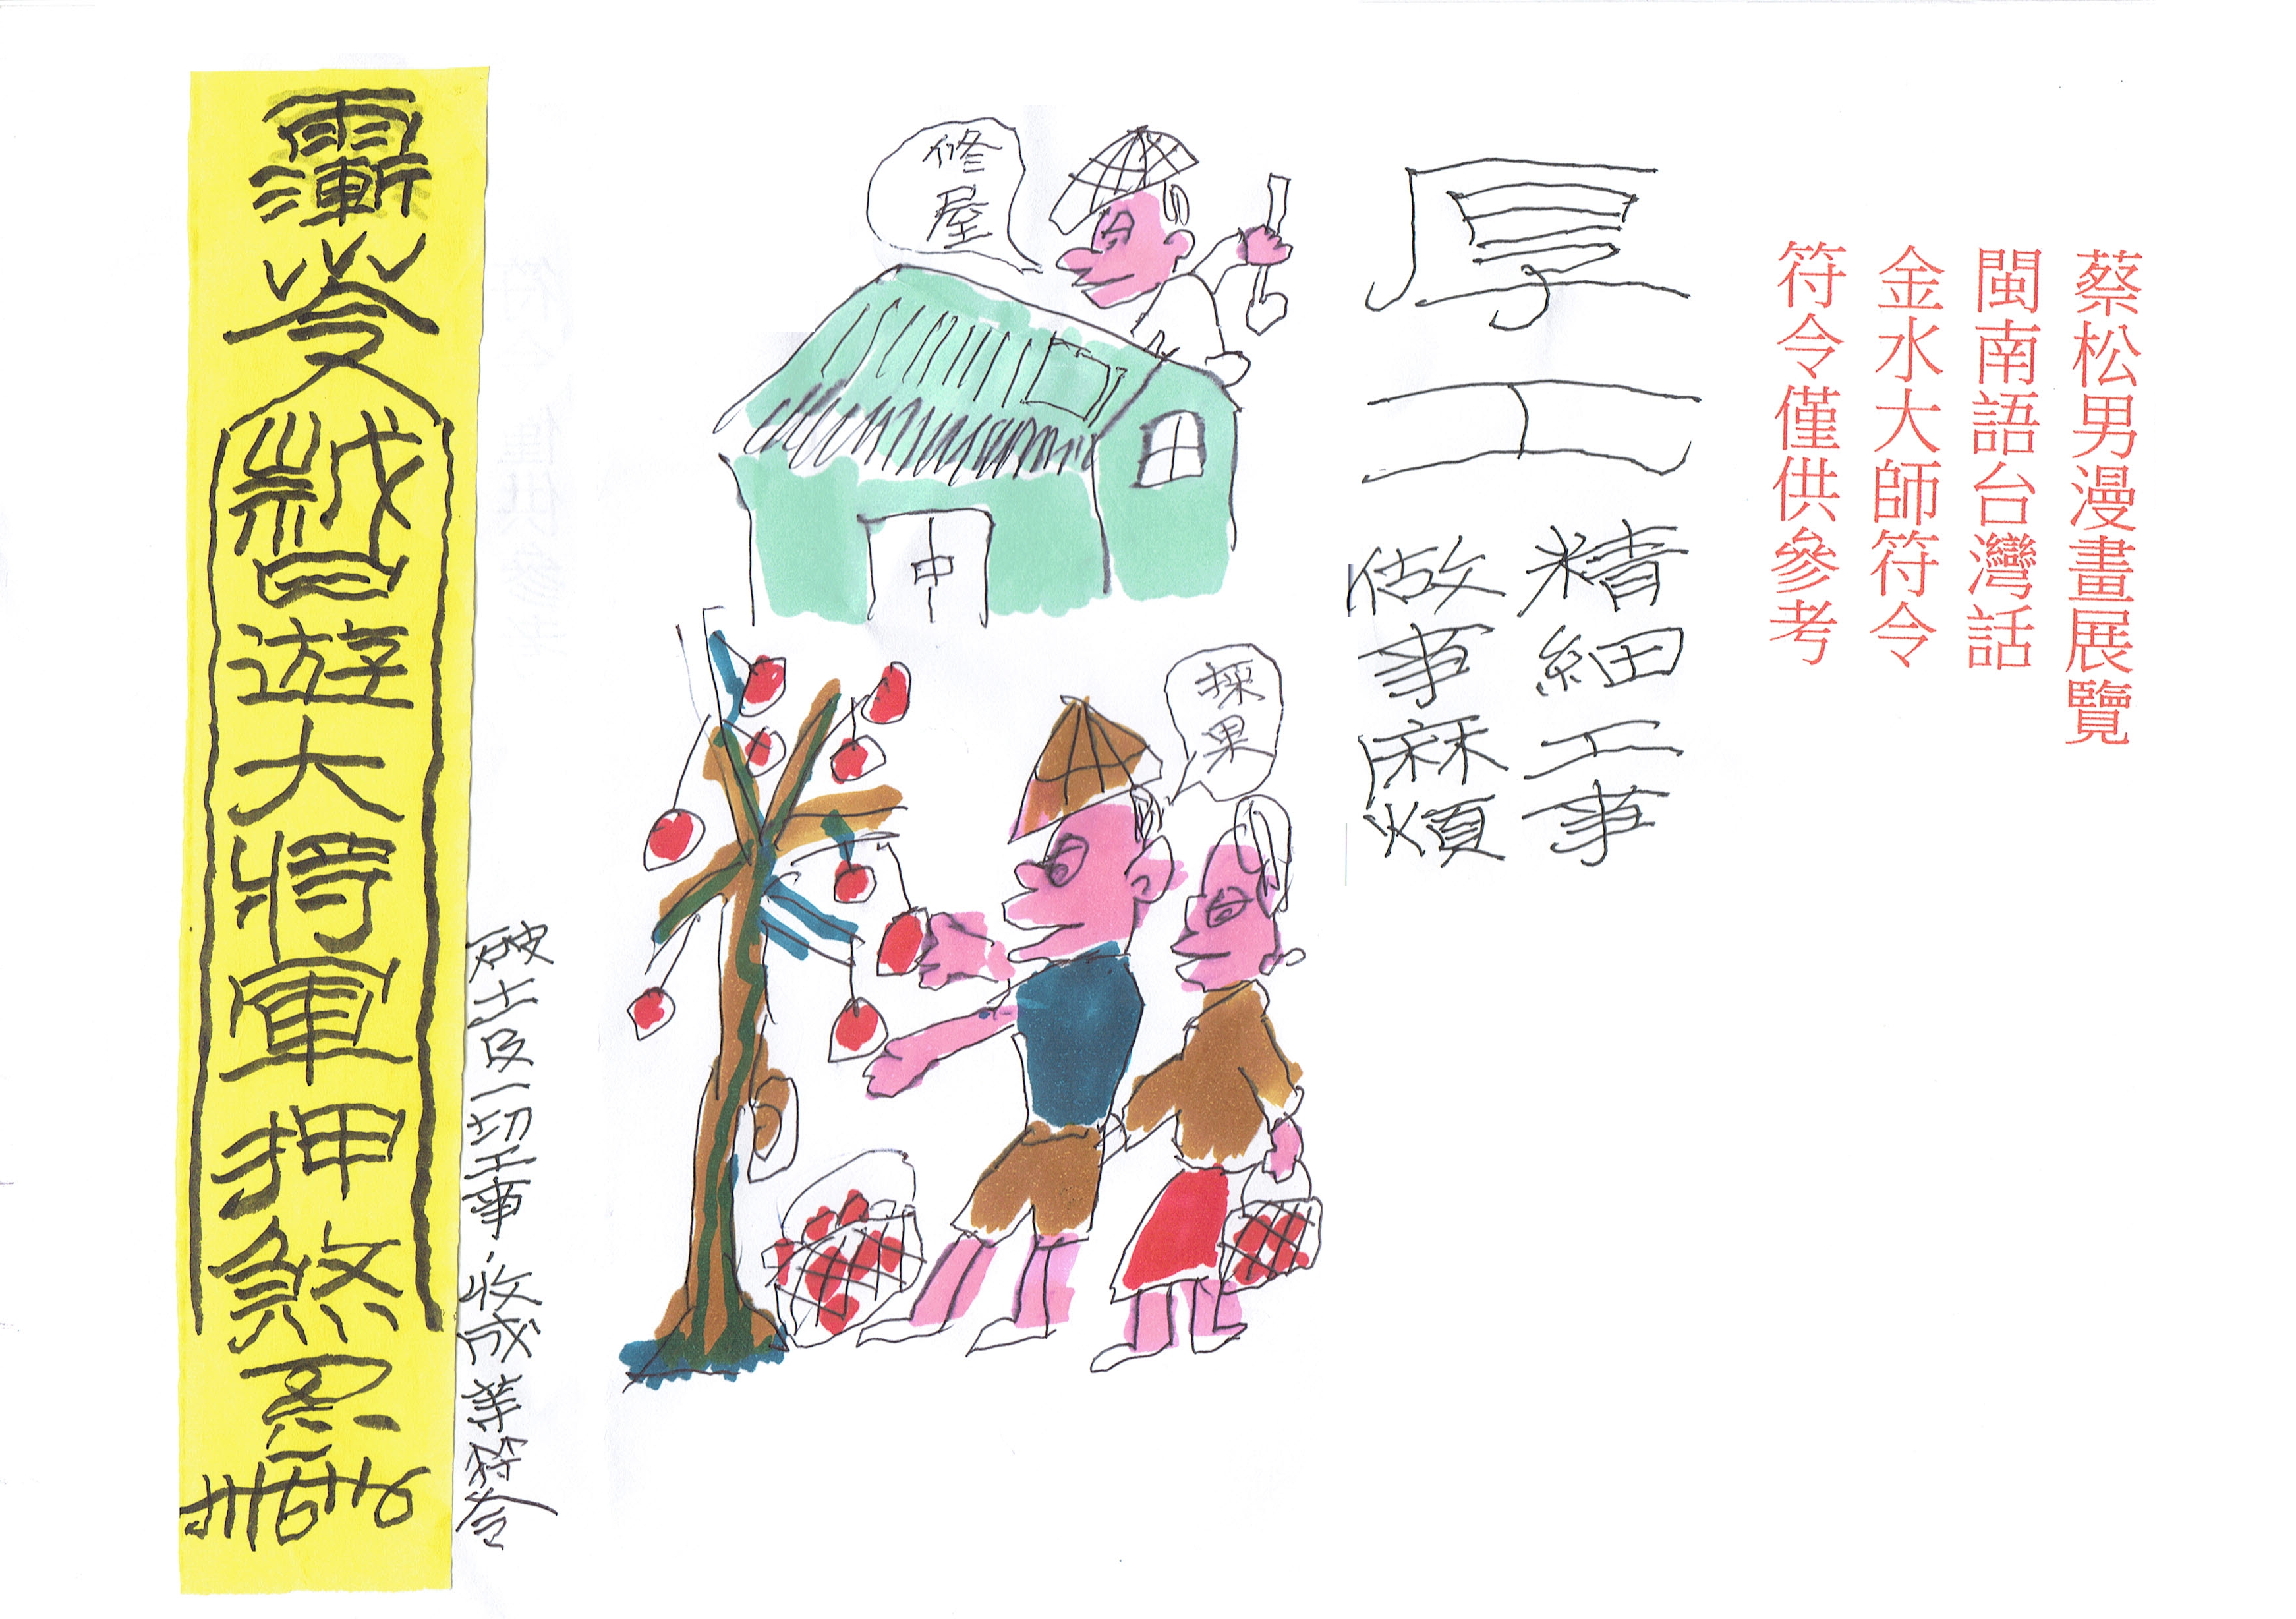 蔡松男漫畫展覽
閩南語台灣話
金水大師符令
符令僅供參考
厚工
精細工事
做事麻煩
修屋
中
採果
破土及一切工事,收成等符令
遊大將軍押煞